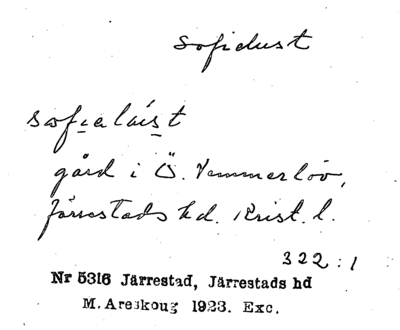 Sofidust
gård i Ö. Vemmerlöv,
Järrestads hd. Krist. l.
322:1
Nr 5316 Järrestad, Järrestads hd
M. Areskoug 1923. Exc.